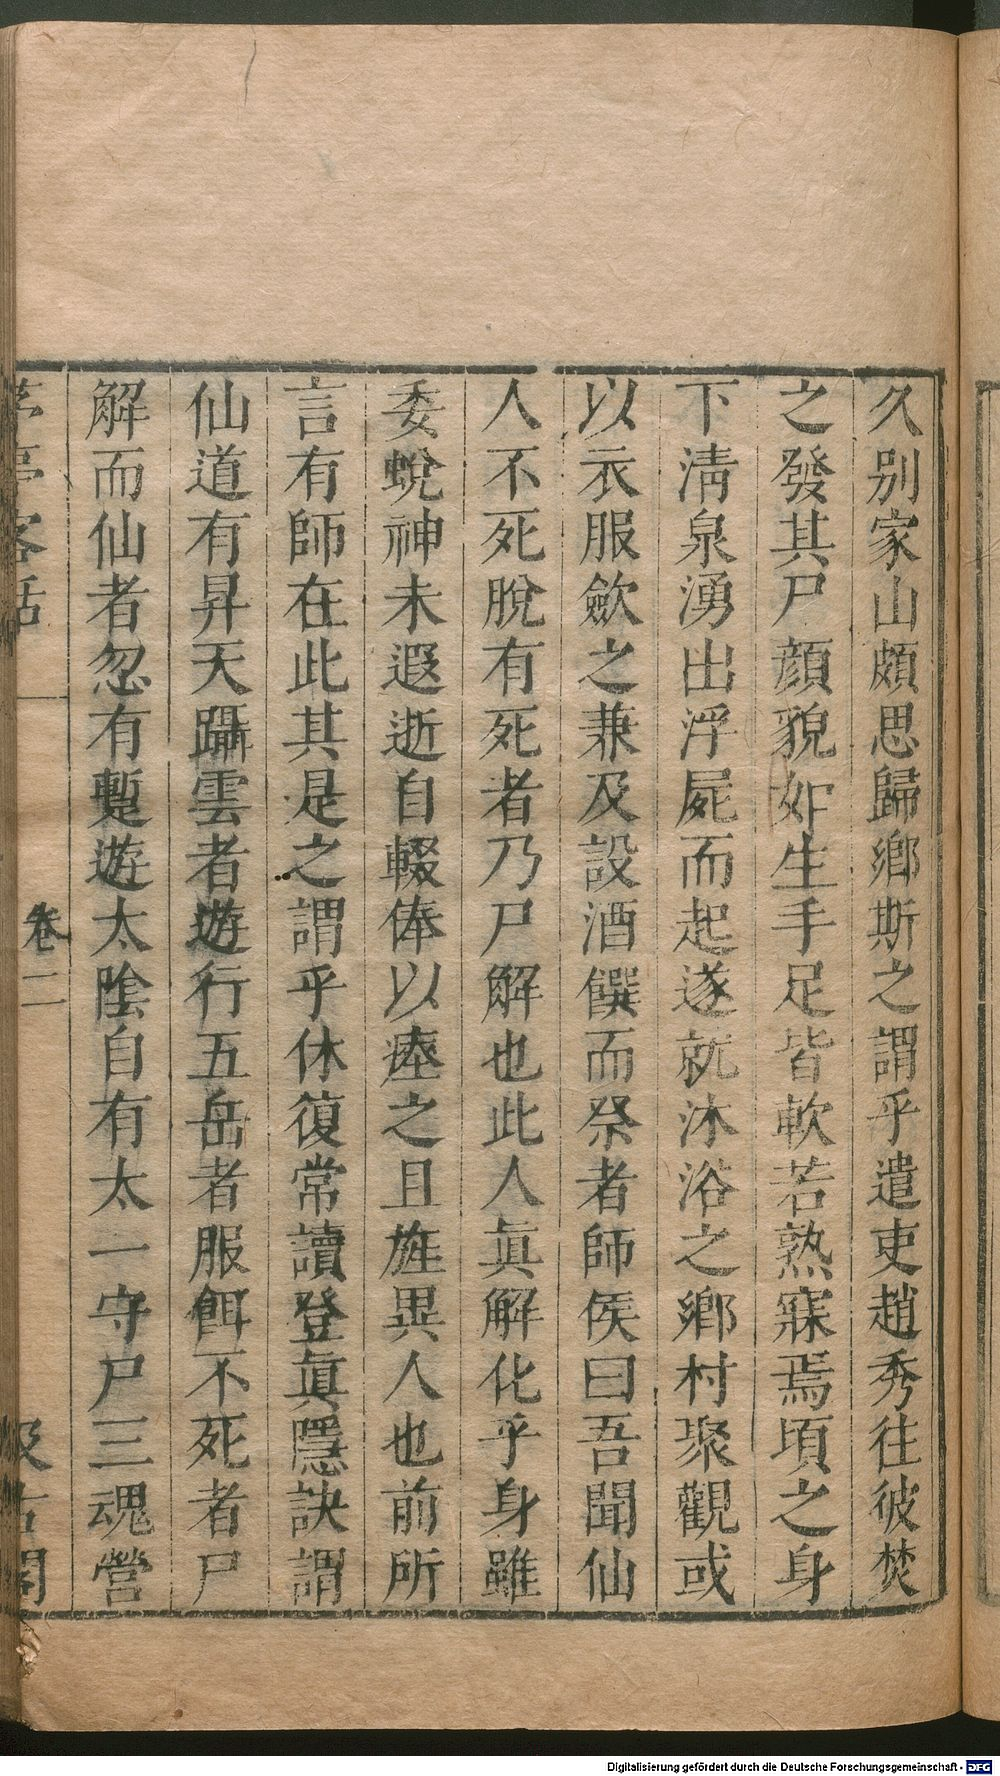 久別家山頗思歸鄉斯之謂乎遣吏趙秀往彼焚
之發其尸顔貌如生手足皆軟若熟寐焉頃之身
下清泉湧出浮屍而起遂就沐浴之鄉村聚觀或
以衣服斂之兼及設酒饌而祭者師俟曰吾聞仙
人不死脫有死者乃尸解也此人眞解化乎身雖
委蛻神未遐逝自輟俸以瘞之且旌異人也前所
言有師在此其是之謂乎休復常讀登眞隱訣謂
仙道有昇天躡雲者遊行五岳者服餌不死者尸
解而仙者忽有蹔遊太陰自有太一守尸三魂營
茅亭客話
卷二
汲古閣
Digitalisierung gefördert durch die Deutsche Forschungsgemeinschaft - DFG